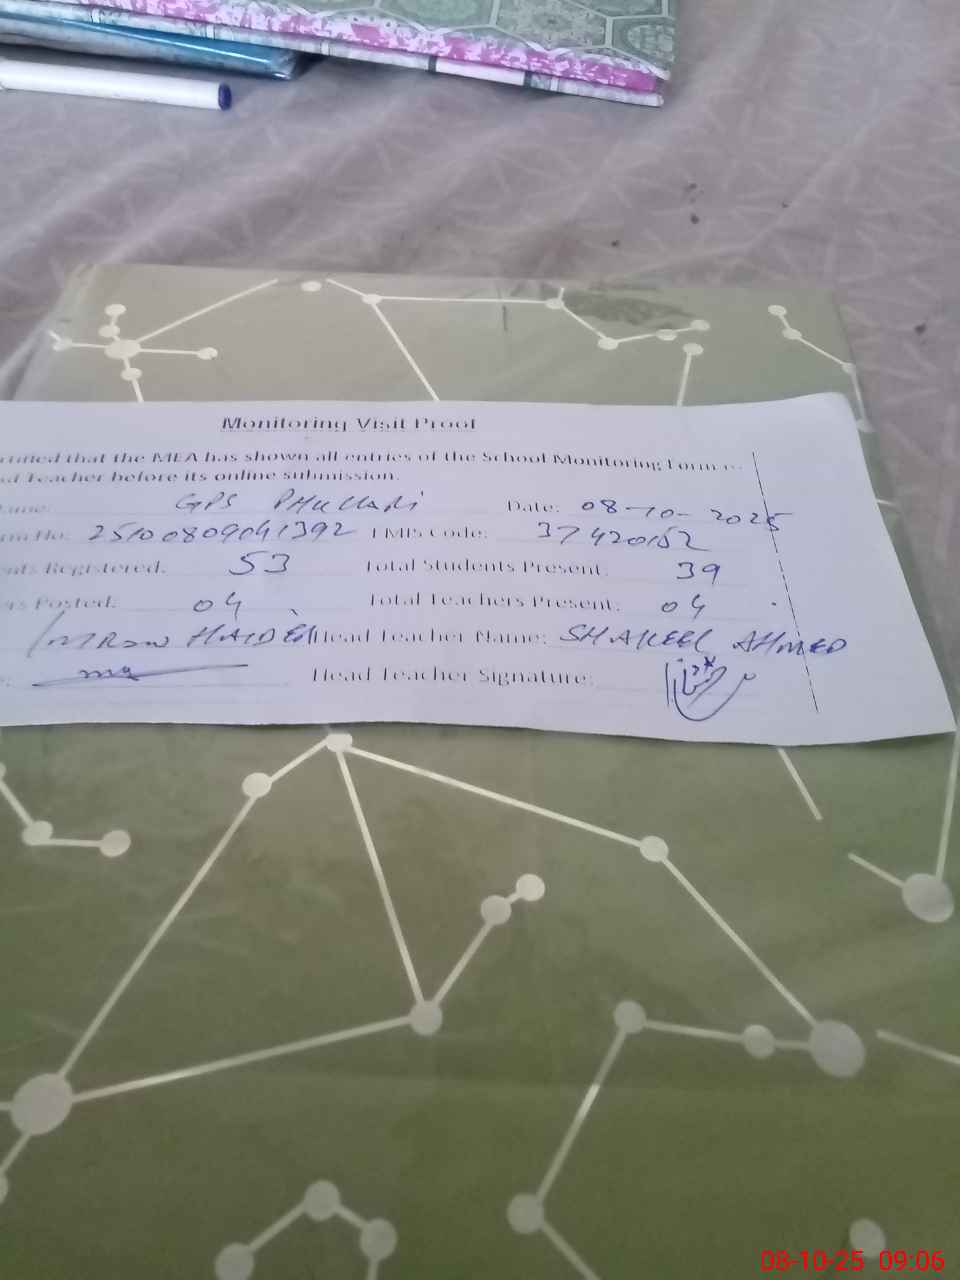 Monitoring Visit Proof
that the MEA has shown all entries of the School Monitoring Form
Teacher before its online submission.
GPS PHULLARI Date: 08-10-2025
No: 25100809041392 EMIS Code: 37420152
Registered: 53 Total Students Present: 39
Posted: 04 Total Teachers Present: 04
IMRAN HAIDER Head Teacher Name: SHAKEEL AHMED
Head Teacher Signature:
08-10-25 09:06